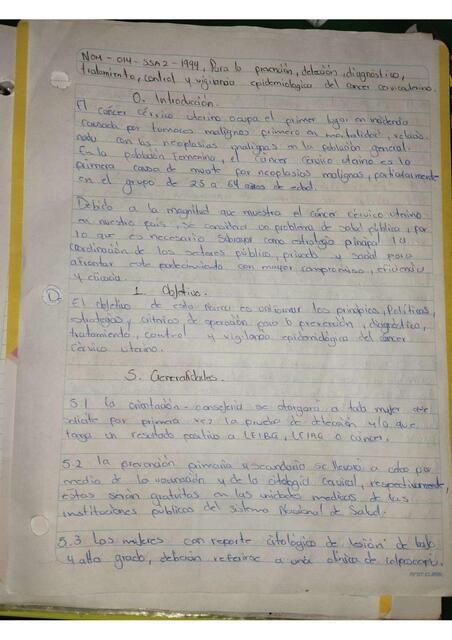 NOM-014-SSA2-1994, Para la prevención, detección, diagnóstico,
tratamiento, control y vigilancia epidemiológica del cancer cervicouterino.
0. Introducción.
El cáncer cérvico uterino ocupa el primer lugar en incidencia
causada por tumores malignos primero en mortalidad, relacio-
nado con las neoplasias malignas en la población general.
En la población femenino, el cáncer cérvico uterino es la
primera causa de muerte por neoplasias malignas, particularmente
en el grupo de 25 a 64 años de edad.
Debido a la magnitud que muestra el cáncer cérvico uterino
en nuestro país, se considera un problema de salud pública, por
lo que es necesario subrayar como estrategia principal la
coordinación de los sectores público, privado y social para
afrontar este padecimiento con mayor compromiso, eficiencia
y eficacia.
1. Objetivo.
El objetivo de esta Norma es uniformar los principios, Políticas,
estrategias y criterios de operación para la prevención, diagnóstico,
tratamiento, control y vigilancia epidemiológica del cáncer
Cérvico uterino.
5. Generalidades.
5.1 La orientación-consejería se otorgará a toda mujer que
solicite por primera vez la prueba de detección y/o que
tenga un resultado positivo a LEIBG, LEIAG o cáncer.
5.2 la prevención primaria y secundaria se llevará a cabo por
medio de la vacunación y de la citología cervical, respectivamente,
éstas serán gratuitas en las unidades medicas de las
instituciones públicas del Sistema Nacional de Salud.
5.3 Las mujeres con reporte citológico de lesión de bajo
y alto grado, deberán referirse a una clínica de colposcopía.